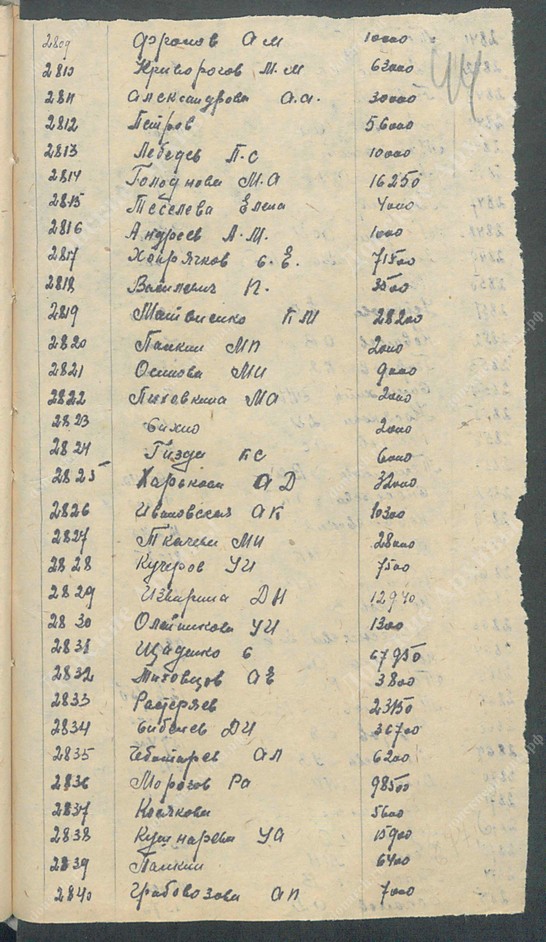 2809 Фролов А М 10000
44
2810 Криворогов М. М 63000
2811 Александрова А.А. 30000
2812 Петров 56000
2813 Лебедев П. С 10000
2814 Голоднова М.А 16250
2815 Тебелева Елена 4000
2816 Андреев А. М. 1000
2817 71500
2818 Василевич П. 3500
2819 Матвиенко К М 28200
2820 Папкин М П 2000
2821 Осипова М И 9000
2822 М А 2000
2823 2000
2824 Гизда К С 6000
2825 Харькова А Д 32000
2826 Ивановская А К 10300
2827 Ткачева М И 28000
2828 Кучеров У И 7500
2829 Д Н 12940
2830 Олейникова У И 1300
2831 Щаденко 67950
2832 А Е 3800
2833 Растеряев 23150
2834 Бибичев Д И 36700
2835 Чеботарев А Л 6200
2836 Морозов Р А 98500
2837 Косякова 5600
2838 Кушнарева У А 15900
2839 Папкин 6400
2840 Грабовозова А П 7000